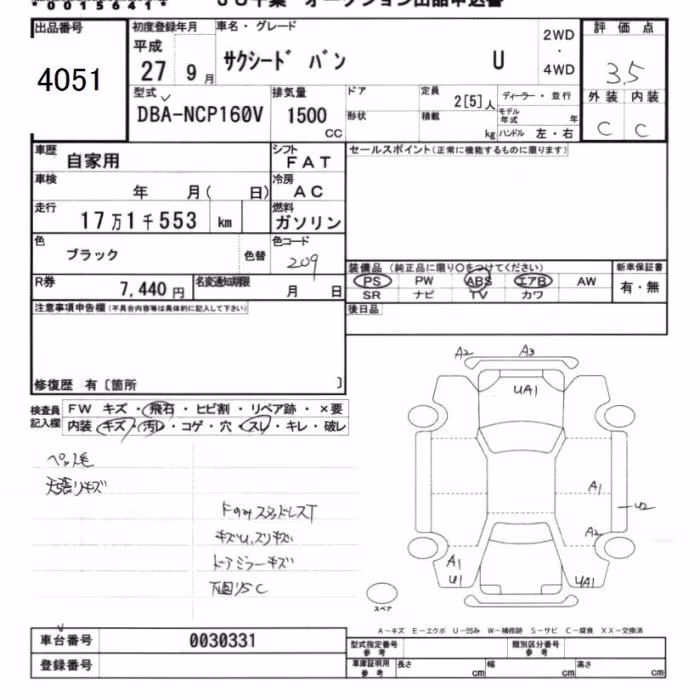 *0015641*
JU千葉 オークション出品申込書
出品番号
4051
初度登録年月
平成
27 9 月
車名・グレード
サクシード バン U
2WD
・
4WD
評価点
3.5
外装 内装
C C
型式
DBA-NCP160V
排気量
1500
CC
ドア
形状
定員
2[5]人
積載
kg
ディーラー・並行
モデル年式 年
ハンドル 左・右
車歴 自家用
シフト FAT
セールスポイント(正常に機能するものに限ります)
車検 年 月( 日)
冷房 AC
走行 17万1千553 km
燃料 ガソリン
色 ブラック 色替
色コード 209
R券 7,440円
名変通知期限 月 日
装備品 (純正品に限り○をつけてください)
PS PW ABS エアB AW
SR ナビ TV カワ
新車保証書
有・無
後日品
注意事項申告欄(不具合内容等は具体的に記入して下さい)
修復歴 有〔箇所 〕
検査員記入欄
FW キズ・飛石・ヒビ割・リペア跡・×要
内装 キズ・汚レ・コゲ・穴・スレ・キレ・破レ
ペット毛
天張リキズ
キズU,スリキズ
ドアミラーキズ
下回リSC
A2 A3
UA1
A1
U2
A2
A1
U1
UA1
スペア
A-キズ E-エクボ U-凹み W-補修跡 S-サビ C-腐食 XX-交換済
車台番号 0030331
登録番号
型式指定番号 参考
類別区分番号 参考
車庫証明用 参考
長さ cm 幅 cm 高さ cm